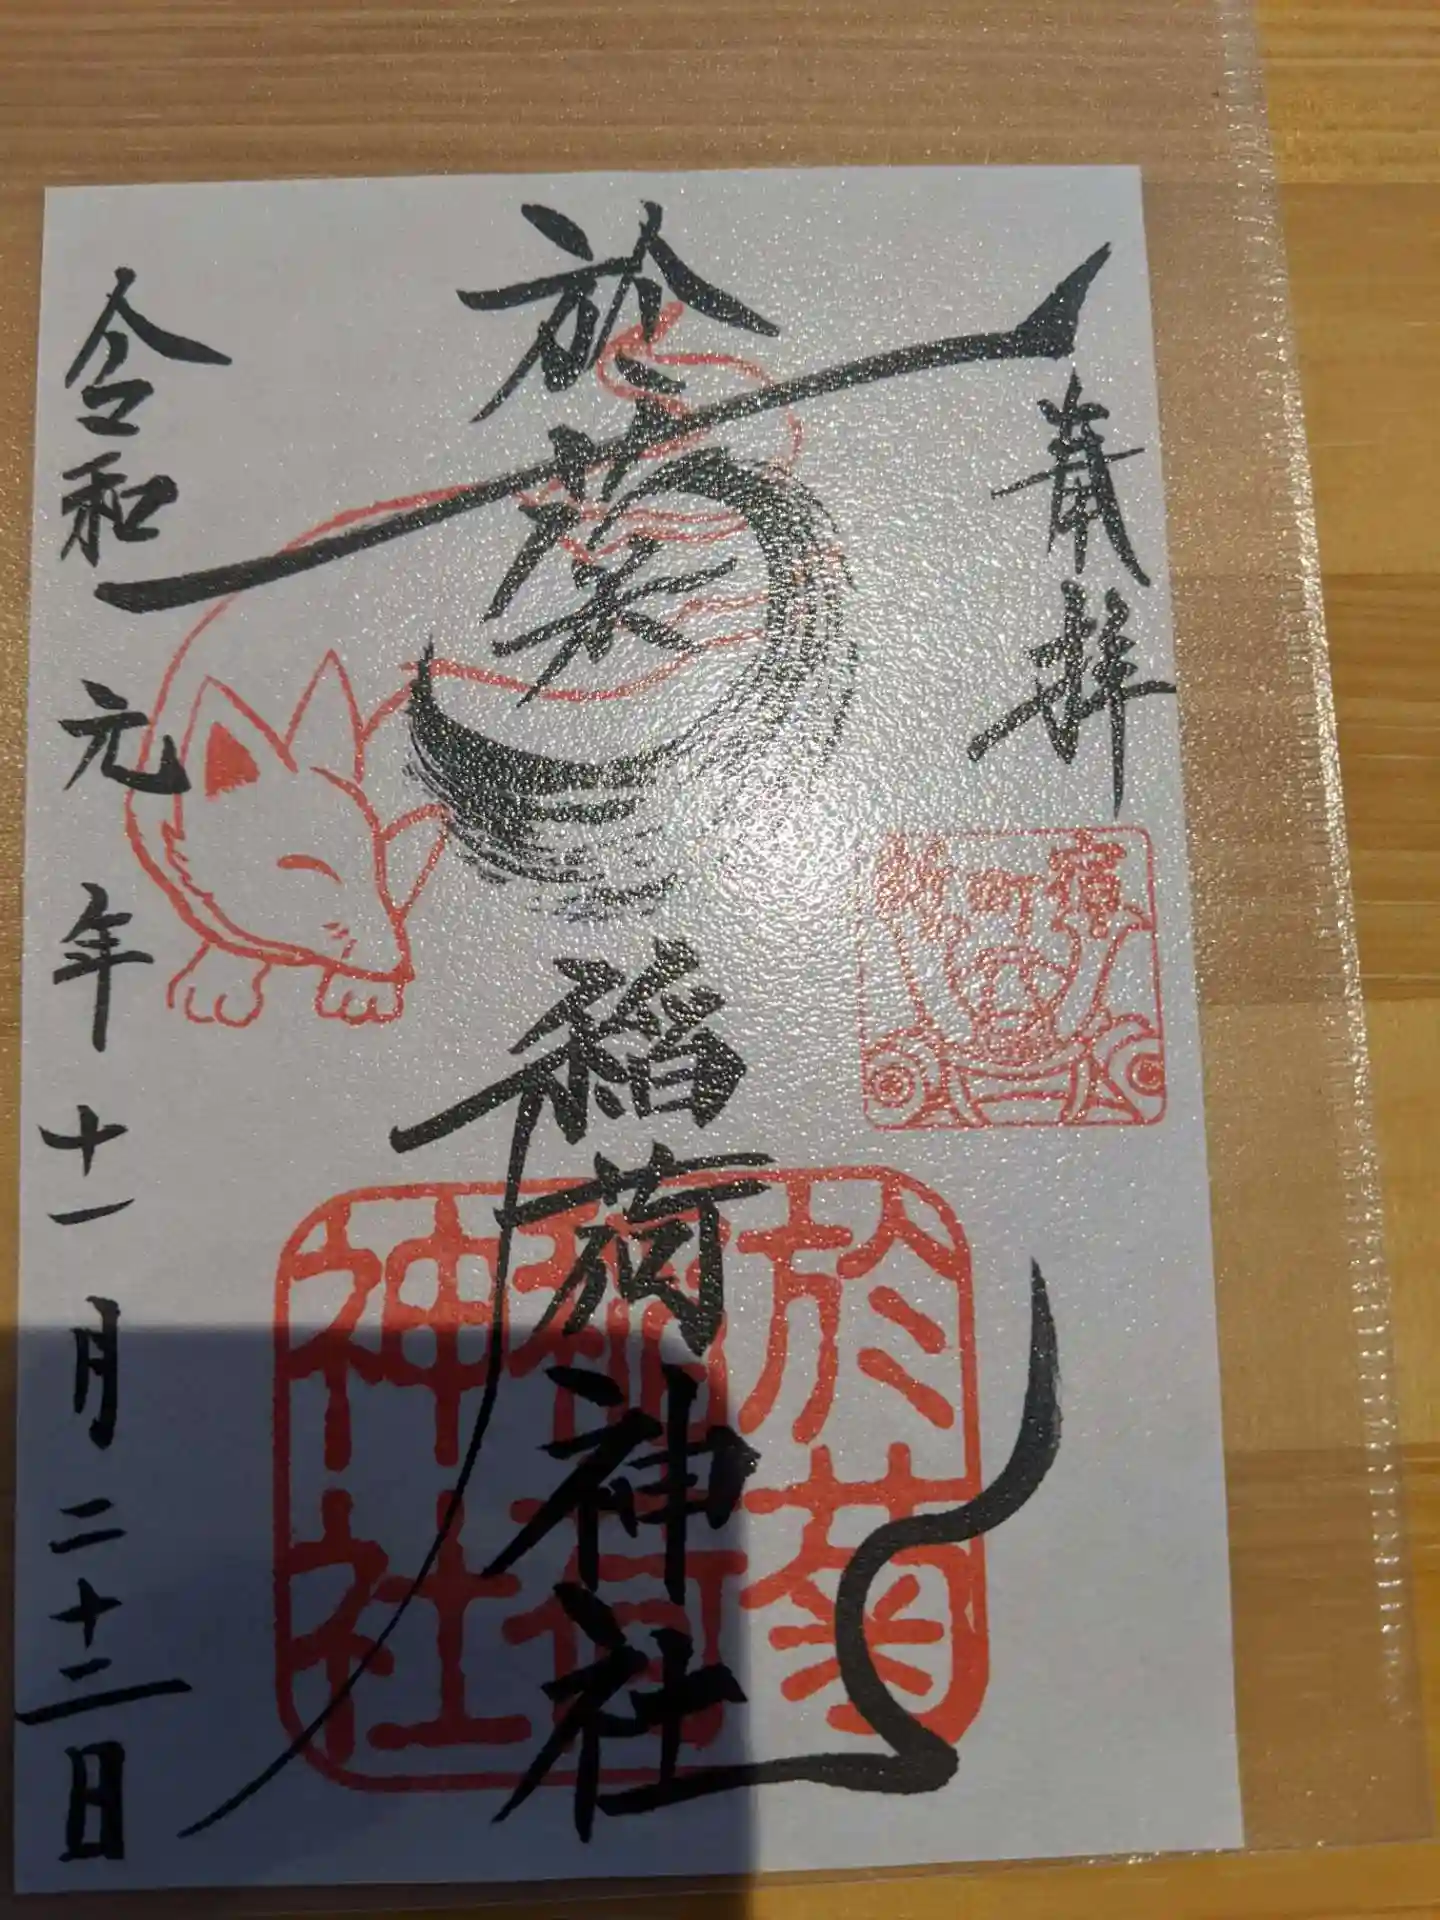 奉拝
於菊稲荷神社
令和元年十一月二十二日
於菊
稲荷
神社